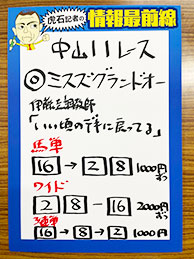 虎石記者の
情報最前線
中山11レース
◎ミスズグランドオー
伊藤圭調教師
「いい頃のデキに戻ってる」
馬単
16→2 8 1000円ずつ
ワイド
2 8-16 2000円ずつ
3連単
16→8→2 1000円